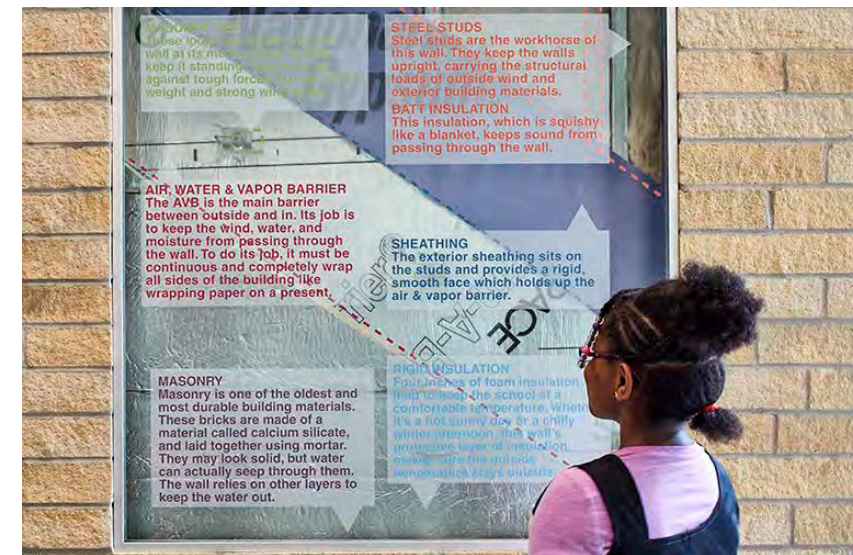 MASONRY TIES
wall at its
keep it standing.
against tough forces
weight and strong wind
STEEL STUDS
Steel studs are the workhorse of
this wall. They keep the walls
upright, carrying the structural
loads of outside wind and
exterior building materials.
BATT INSULATION
This insulation, which is squishy
like a blanket, keeps sound from
passing through the wall.
AIR, WATER & VAPOR BARRIER
The AVB is the main barrier
between outside and in. Its job is
to keep the wind, water, and
moisture from passing through
the wall. To do its job, it must be
continuous and completely wrap
all sides of the building like
wrapping paper on a present.
SHEATHING
The exterior sheathing sits on
the studs and provides a rigid,
smooth face which holds up the
air & vapor barrier.
MASONRY
Masonry is one of the oldest and
most durable building materials.
These bricks are made of a
material called calcium silicate,
and laid together using mortar.
They may look solid, but water
can actually seep through them.
The wall relies on other layers to
keep the water out.
RIGID INSULATION
Four inches of foam insulation
help to keep the school at a
comfortable temperature. Whether
it's a hot sunny day or a chilly
winter afternoon, this wall's
protective layer of insulation
makes sure the outside
temperature stays outside.